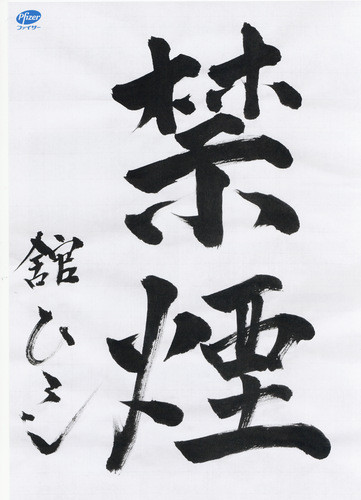 Pfizer
ファイザー
禁煙
舘ひろし